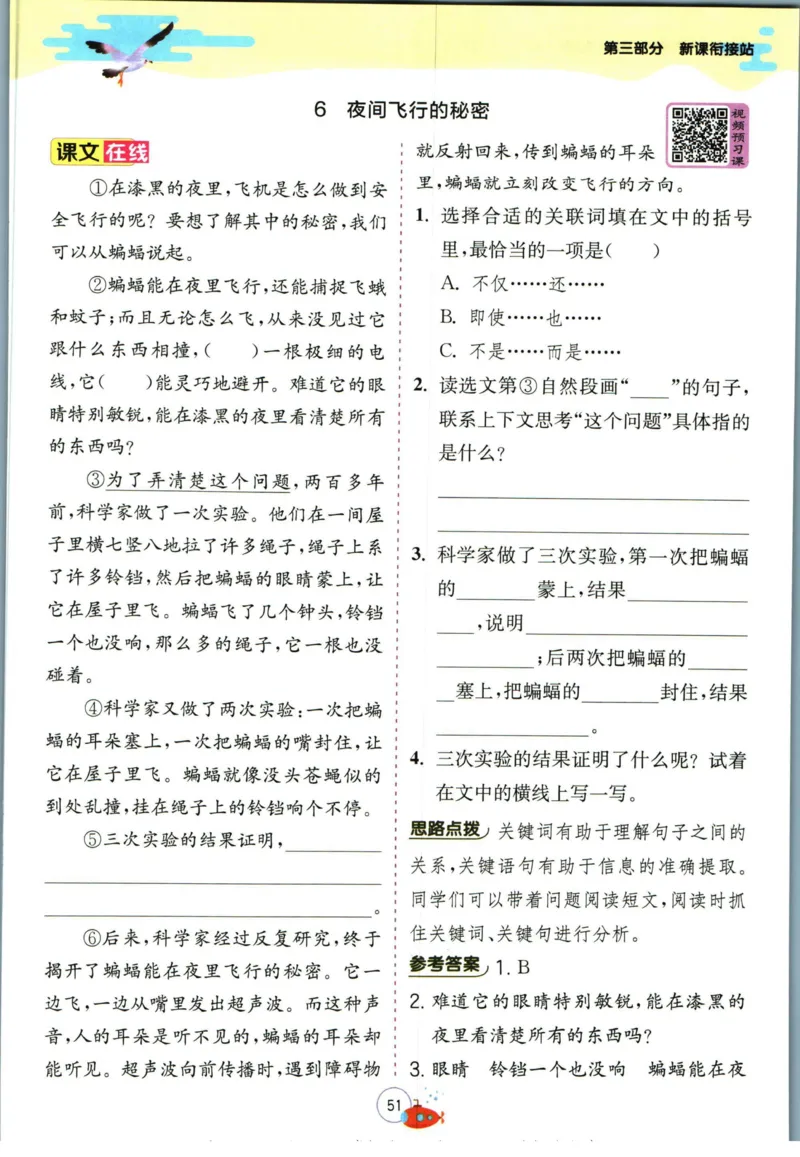 第三部分 新课衔接站
6 夜间飞行的秘密
视频预习课
课文在线
①在漆黑的夜里,飞机是怎么做到安
全飞行的呢？要想了解其中的秘密,我们
可以从蝙蝠说起。
②蝙蝠能在夜里飞行,还能捕捉飞蛾
和蚊子;而且无论怎么飞,从来没见过它
跟什么东西相撞,(　　)一根极细的电
线,它(　　)能灵巧地避开。难道它的眼
睛特别敏锐,能在漆黑的夜里看清楚所有
的东西吗？
③为了弄清楚这个问题,两百多年
前,科学家做了一次实验。他们在一间屋
子里横七竖八地拉了许多绳子,绳子上系
了许多铃铛,然后把蝙蝠的眼睛蒙上,让
它在屋子里飞。蝙蝠飞了几个钟头,铃铛
一个也没响,那么多的绳子,它一根也没
碰着。
④科学家又做了两次实验:一次把蝙
蝠的耳朵塞上,一次把蝙蝠的嘴封住,让
它在屋子里飞。蝙蝠就像没头苍蝇似的
到处乱撞,挂在绳子上的铃铛响个不停。
⑤三次实验的结果证明,________
________________
________________。
⑥后来,科学家经过反复研究,终于
揭开了蝙蝠能在夜里飞行的秘密。它一
边飞,一边从嘴里发出超声波。而这种声
音,人的耳朵是听不见的,蝙蝠的耳朵却
能听见。超声波向前传播时,遇到障碍物
就反射回来,传到蝙蝠的耳朵
里,蝙蝠就立刻改变飞行的方向。
1. 选择合适的关联词填在文中的括号
里,最恰当的一项是(　　)
A. 不仅……还……
B. 即使……也……
C. 不是……而是……
2. 读选文第③自然段画“____”的句子,
联系上下文思考“这个问题”具体指的
是什么?
________________
________________
3. 科学家做了三次实验,第一次把蝙蝠
的______蒙上,结果________
____,说明________________
________;后两次把蝙蝠的_____
__塞上,把蝙蝠的______封住,结果
____________。
4. 三次实验的结果证明了什么呢？试着
在文中的横线上写一写。
思路点拨 关键词有助于理解句子之间的
关系,关键语句有助于信息的准确提取。
同学们可以带着问题阅读短文,阅读时抓
住关键词、关键句进行分析。
参考答案 1. B
2. 难道它的眼睛特别敏锐,能在漆黑的
夜里看清楚所有的东西吗?
3. 眼睛　铃铛一个也没响　蝙蝠能在夜
51